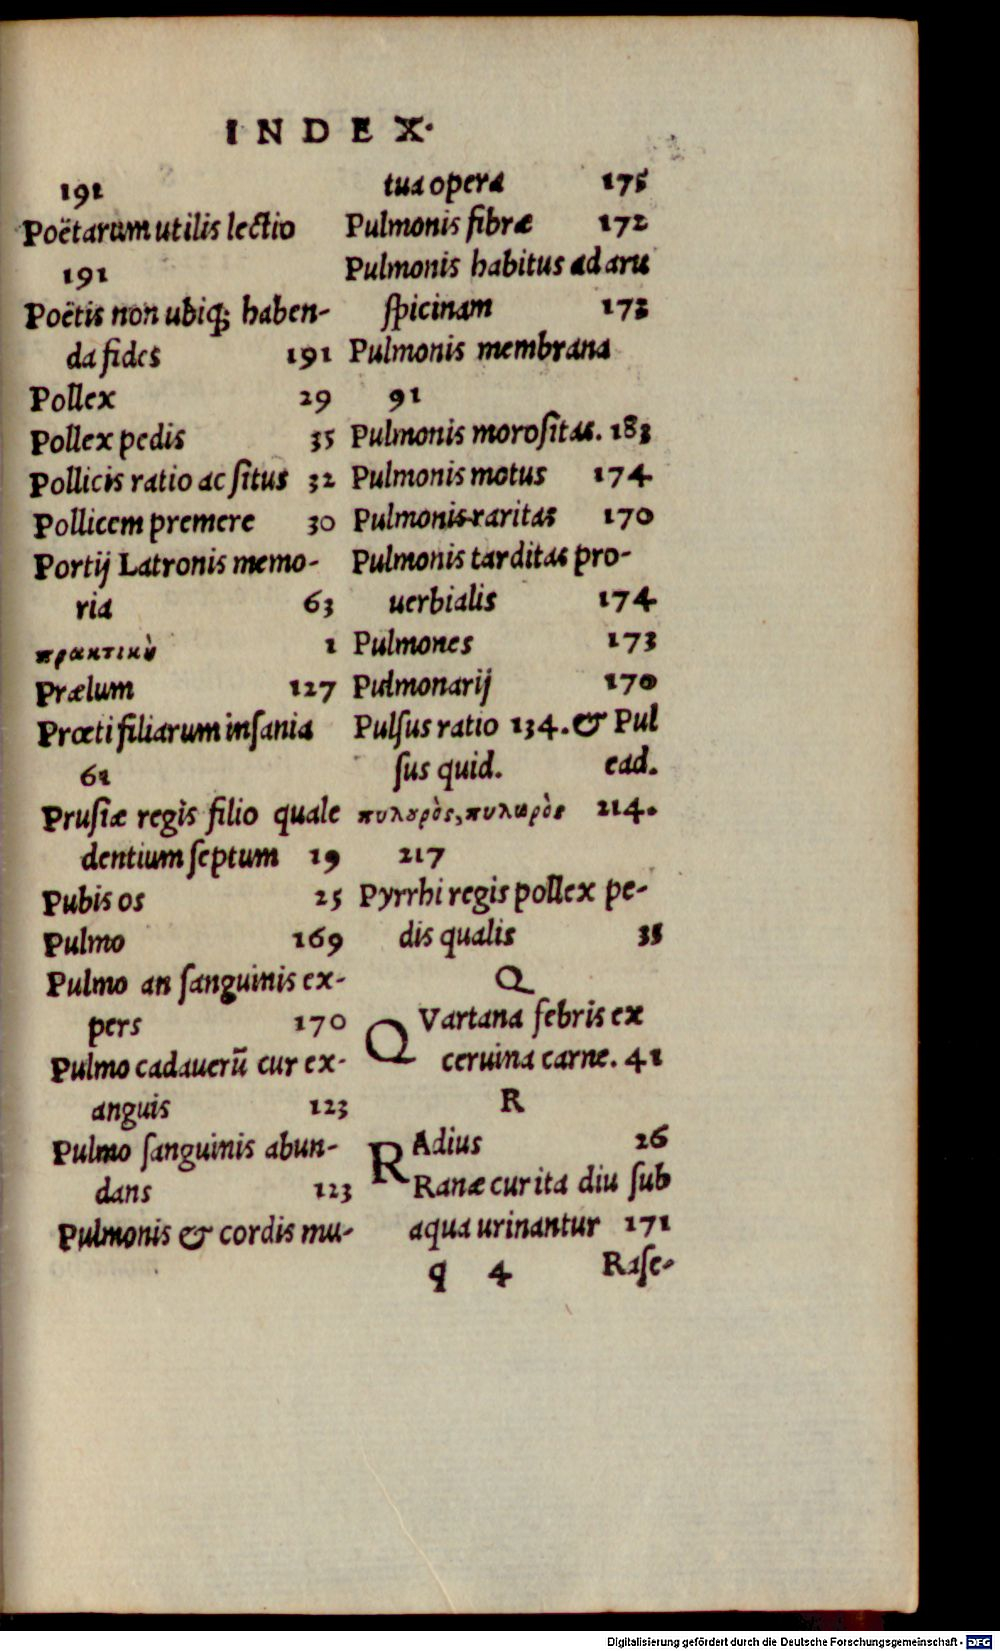 INDEX.
191
Poëtarum utilis lectio
191
Poëtis non ubiq; haben-
da fides 191
Pollex 29
Pollex pedis 35
Pollicis ratio ac ſitus 32
Pollicem premere 30
Portij Latronis memo-
ria 63
πρακτικὴ 1
Prælum 127
Prœti filiarum inſania
61
Pruſiæ regis filio quale
dentium ſeptum 19
Pubis os 25
Pulmo 169
Pulmo an ſanguinis ex-
pers 170
Pulmo cadauerū cur ex-
anguis 123
Pulmo ſanguinis abun-
dans 123
Pulmonis & cordis mu-
tua opera 175
Pulmonis fibræ 172
Pulmonis habitus ad aru
ſpicinam 173
Pulmonis membrana
91
Pulmonis moroſitas. 183
Pulmonis motus 174
Pulmonis raritas 170
Pulmonis tarditas pro-
uerbialis 174
Pulmones 173
Pulmonarij 170
Pulſus ratio 134. & Pul
ſus quid. ead.
πυλουρὸς, πυλωρὸς 214.
217
Pyrrhi regis pollex pe-
dis qualis 35
Q
QVartana febris ex
ceruina carne. 41
R
RAdius 26
Ranæ cur ita diu ſub
aqua urinantur 171
q 4 Raſe-
Digitalisierung gefördert durch die Deutsche Forschungsgemeinschaft - DFG